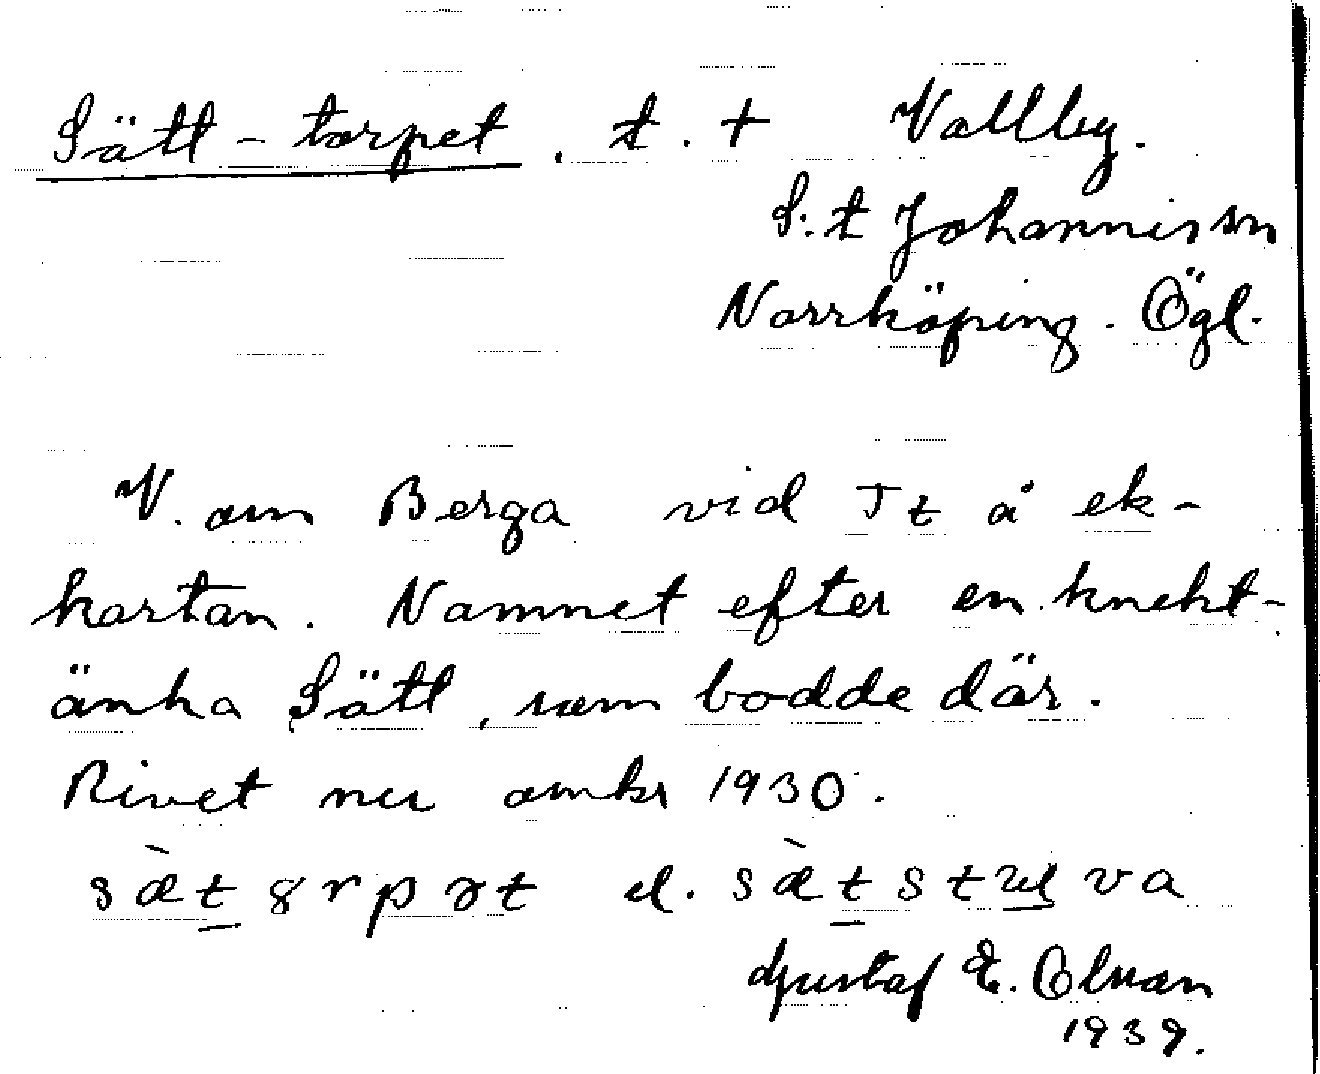 Sätt-torpet. t. + Vallby.
S:t Johannis sn
Norrköping. Ögl.
V. om Berga vid T t å ek-
kartan. Namnet efter en knekt-
änka Sätt, som bodde där.
Rivet ner omkr 1930.
el.
Gustaf E. Olsson
1939.